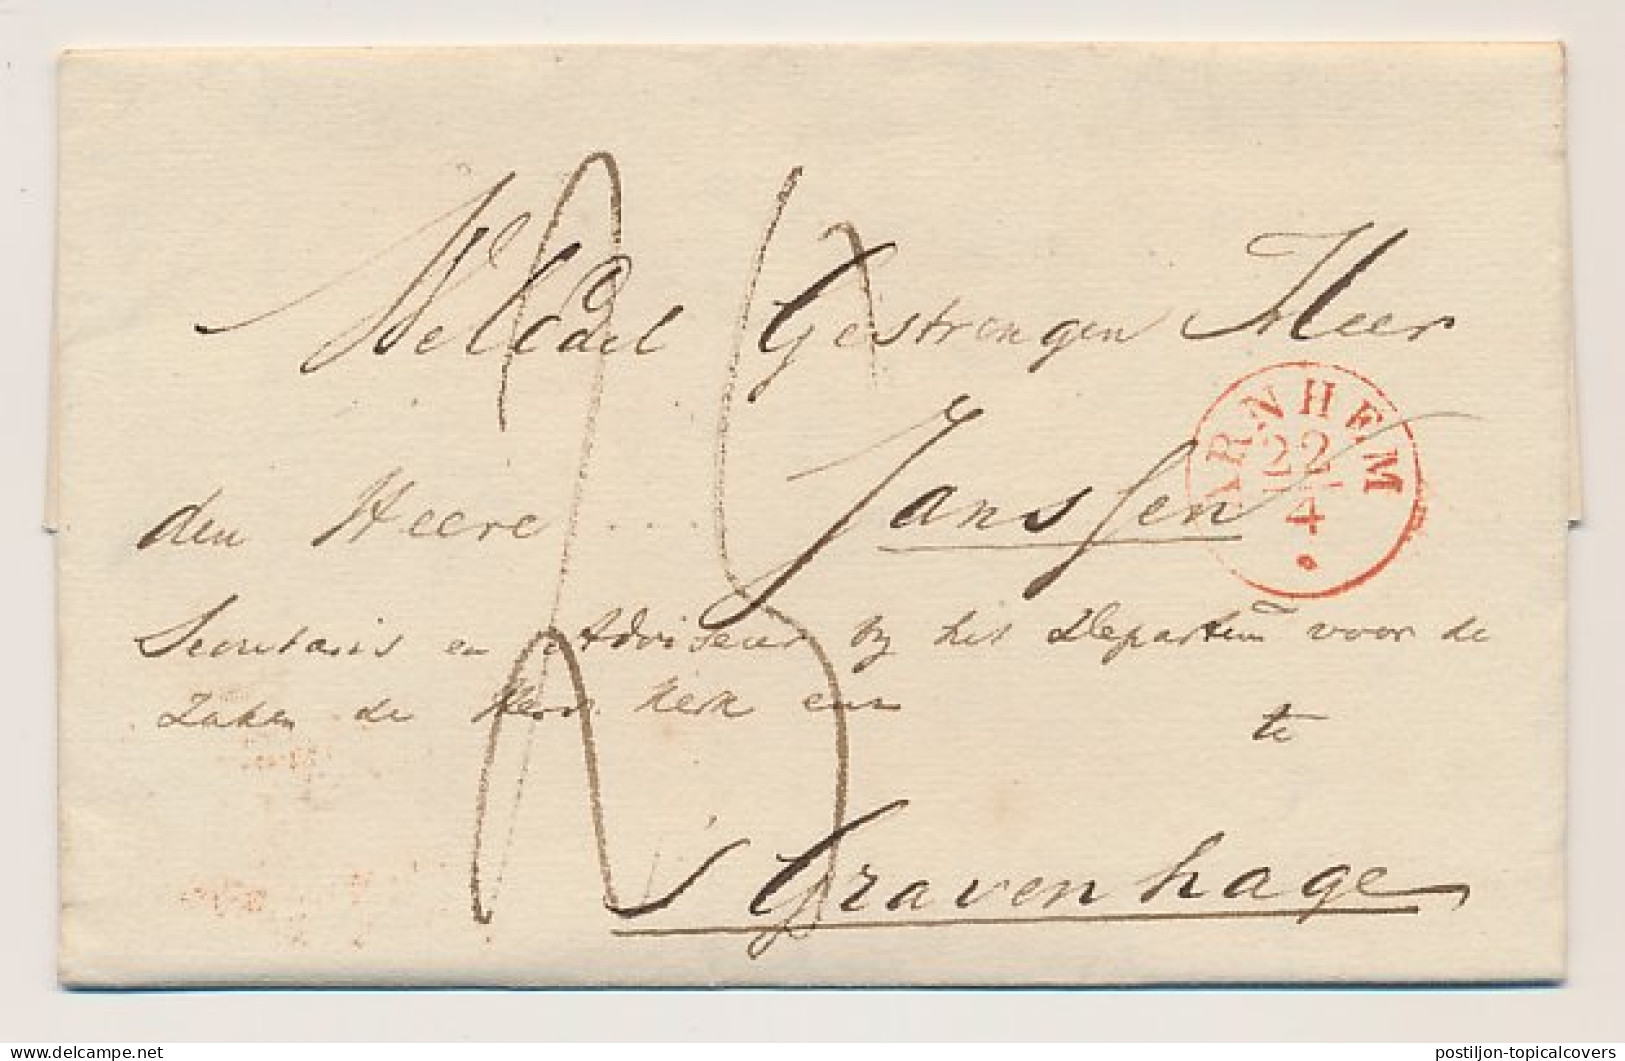 WelEdel Gestrengen Heer
den Heere .... Janssen
Secretaris en Adviseur by het Departem voor de
Zaken de Herv Kerk enz
te
's Gravenhage
25
ARNHEM
22
4
delcampe.net
postiljon-topicalcovers